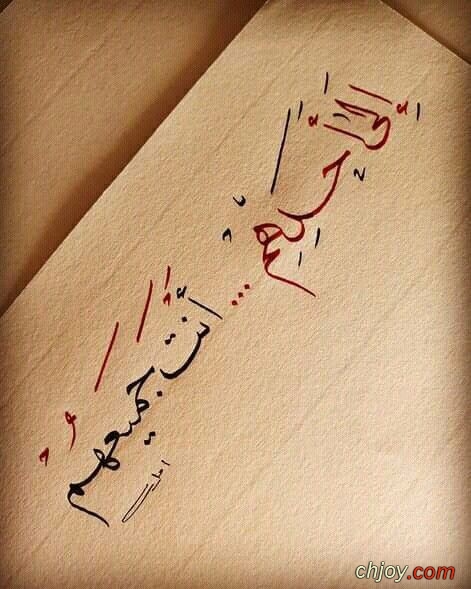 إلى أحدهم ...
أنت جميعهم
chjoy.com